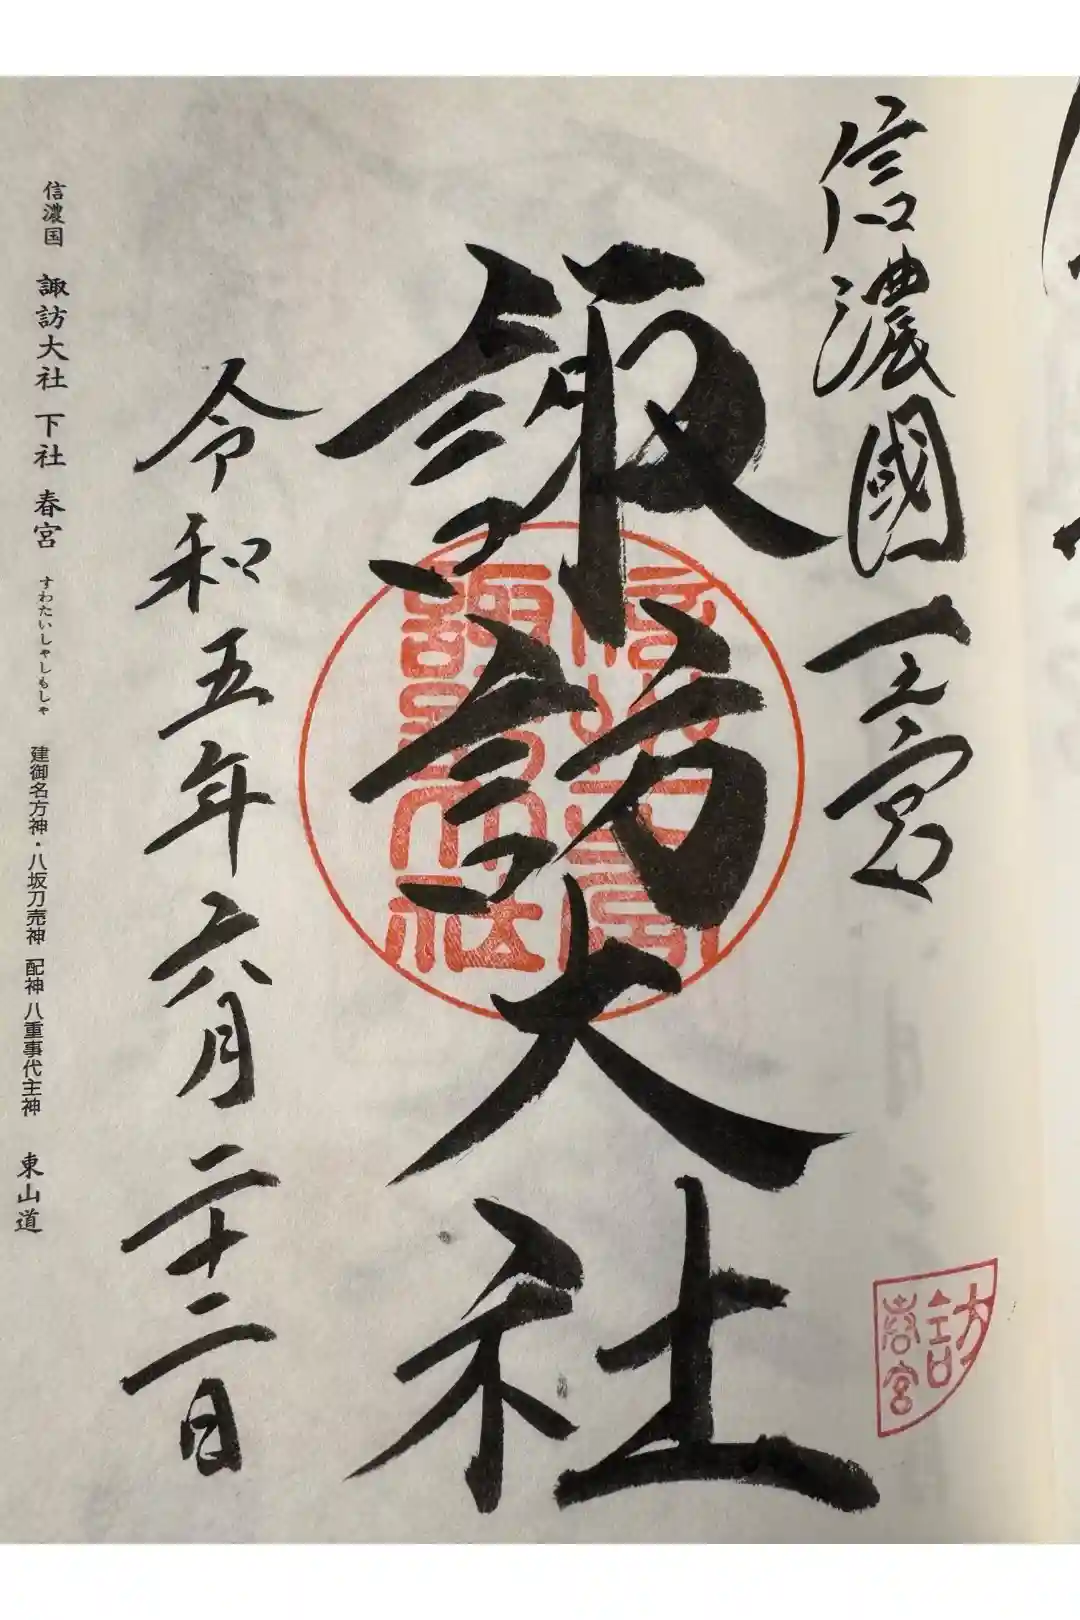 信濃國一之宮
諏訪大社
令和五年六月二十二日
信濃国 諏訪大社 下社 春宮 すわたいしゃしもしゃ 建御名方神・八坂刀売神 配神 八重事代主神 東山道
訪
春宮